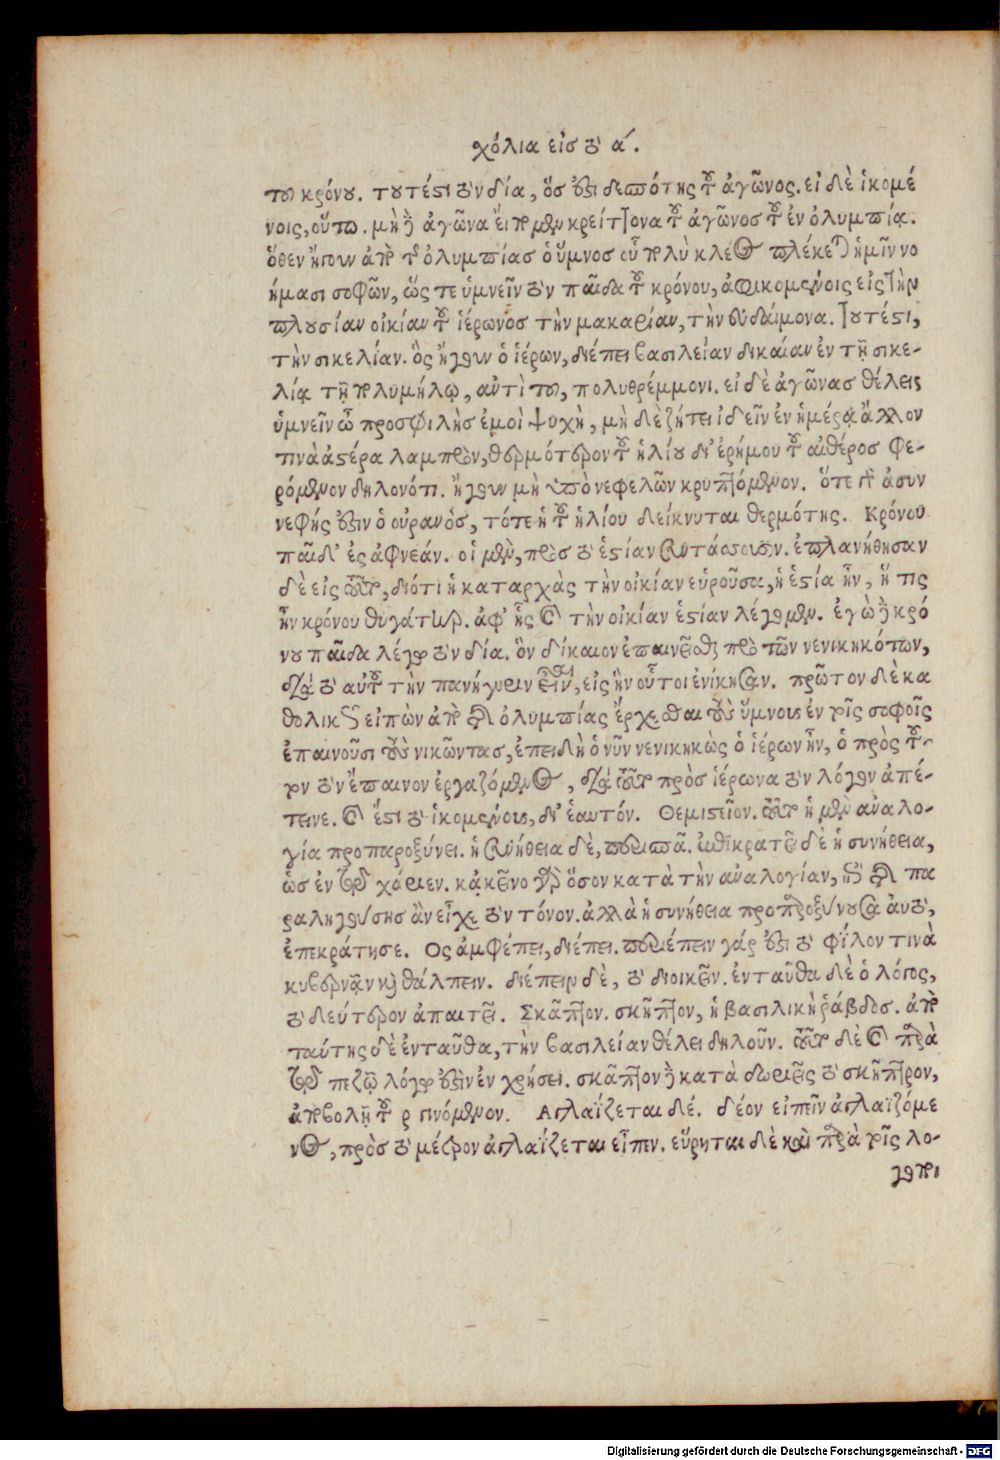 χόλια εἰσ τὸ ά.
του κρόνου. τουτέστι τὸν δία, ὅσ ἐστι δεσπότης τοῦ ἀγῶνος. εἰ δὲ ἱκομέ
νοις, οὕτω. μὴ δὲ ἀγῶνα εἴπωμεν κρείττονα τοῦ ἀγῶνοσ τοῦ ἐν ὀλυμπίᾳ.
ὅθεν ἤγουν ἀπὸ τῆς ὀλυμπίασ ὁ ὕμνοσ ὁ πολὺ κλεος πλέκεται ἡμῖν νο
ήμασι σοφῶν, ὥς τε ὑμνεῖν τὸν παῖδα τοῦ κρόνου, ἀφικομένοις εἰς τὴν
πλουσίαν οἰκίαν τοῦ ἱέρωνοσ τὴν μακαρίαν, τὴν εὐδαίμονα. τουτέστι,
τὴν σικελίαν. ὃς ἤγουν ὁ ἱέρων, διέπει βασιλείαν δικαίαν ἐν τῇ σικε-
λίᾳ τῇ πολυμήλῳ, αὐτὶ του, πολυθρέμμονι. εἰ δὲ ἀγῶνασ θέλεις
ὑμνεῖν ὦ προσφιλὴσ ἐμοὶ ψυχὴ, μὴ δὲ ζήτει ἰδεῖν ἐν ἡμέρᾳ ἄλλον
τινὰ ἀστέρα λαμπρὸν, θερμότερον τοῦ ἡλίου δι' ἐρήμου τοῦ αἰθέροσ φε-
ρόμενον δηλονότι. ἤγουν μὴ ὑπὸ νεφελῶν κρυπτόμενον. ὅτε γὰρ ἀσυν
νεφής ἐστιν ὁ οὐρανὸς, τότε ἡ τοῦ ἡλίου δείκνυται θερμότης. Κρόνου
παῖδ' ἐς ἀφνεάν. οἱ μὲν, πρὸσ τὸ ἑστίαν συντάσσουσιν. ἐπλανήθησαν
δὲ εἰς τοῦτο, διότι ἡ καταρχὰς τὴν οἰκίαν εὑροῦσα, ἡ ἑστία ἦν, ἥ τις
ἦν κρόνου θυγάτηρ. ἀφ' ἧς καὶ τὴν οἰκίαν ἑστίαν λέγομεν. ἐγὼ δὲ κρό
νου παῖδα λέγω τὸν δία. ὃν δίκαιον ἐπαινεῖσθαι πρὸ τῶν νενικηκότων,
διὰ τὸ αὐτοῦ τὴν πανήγυριν εἶναι, εἰς ἣν οὗτοι ἐνίκησαν. πρῶτον δὲ κα
θολικῶς εἰπὼν ἀπὸ τῆς ὀλυμπίας ἔρχεσθαι τοὺς ὕμνους ἐν τοῖς σοφοῖς
ἐπαινοῦσι τοὺς νικῶντας, ἐπειδὴ ὁ νῦν νενικηκὼς ὁ ἱέρων ἦν, ὁ πρὸς τοῦ-
τον τὸν ἔπαινον ἐργαζόμενος, διὰ τοῦτο πρὸσ ἱέρωνα τὸν λόγον ἀπέ-
τεινε. καὶ ἔστι τὸ ἱκομένους, δι' ἑαυτόν. Θεμιστεῖον. τοῦτο ἡ μὲν ἀναλο-
γία προπαροξύνει. ἡ συνήθεια δὲ, περισπᾶ. ἐπικρατεῖ δὲ ἡ συνήθεια,
ὡσ ἐν τῷ χάριεν. κἀκεῖνο γὰρ ὅσον κατὰ τὴν ἀναλογίαν, ὡς τῆς πα
ραληγούσησ ἂν εἶχε τὸν τόνον. ἀλλὰ ἡ συνήθεια προπαροξύνουσα αὐτὸ,
ἐπεκράτησε. Ος ἀμφέπει, διέπει. περιέπειν γάρ ἐστι τὸ φίλον τινὰ
κυβερνᾷν καὶ θάλπειν. διέπειν δὲ, τὸ διοικεῖν. ἐνταῦθα δὲ ὁ λόγος,
τὸ δεύτερον ἀπαιτεῖ. Σκᾶπτον. σκῆπτον, ἡ βασιλικὴ ῥάβδος. ἀπὸ
ταύτης δὲ ἐνταῦθα, τὴν βασιλείαν θέλει δηλοῦν. τοῦτο δὲ καὶ παρὰ
τῷ πεζῷ λόγῳ ἐστὶν ἐν χρήσει. σκᾶπτον δὲ κατὰ δωριεῖς τὸ σκῆπτρον,
ἀποβολῇ τοῦ ρ γινόμενον. Αγλαΐζεται δέ. δέον εἰπεῖν ἀγλαϊζόμε
νος, πρὸσ τὸ μέτρον ἀγλαΐζεται εἶπεν. εὕρηται δὲ καὶ παρὰ τοῖς λο-
γοποι
Digitalisierung gefördert durch die Deutsche Forschungsgemeinschaft - DFG